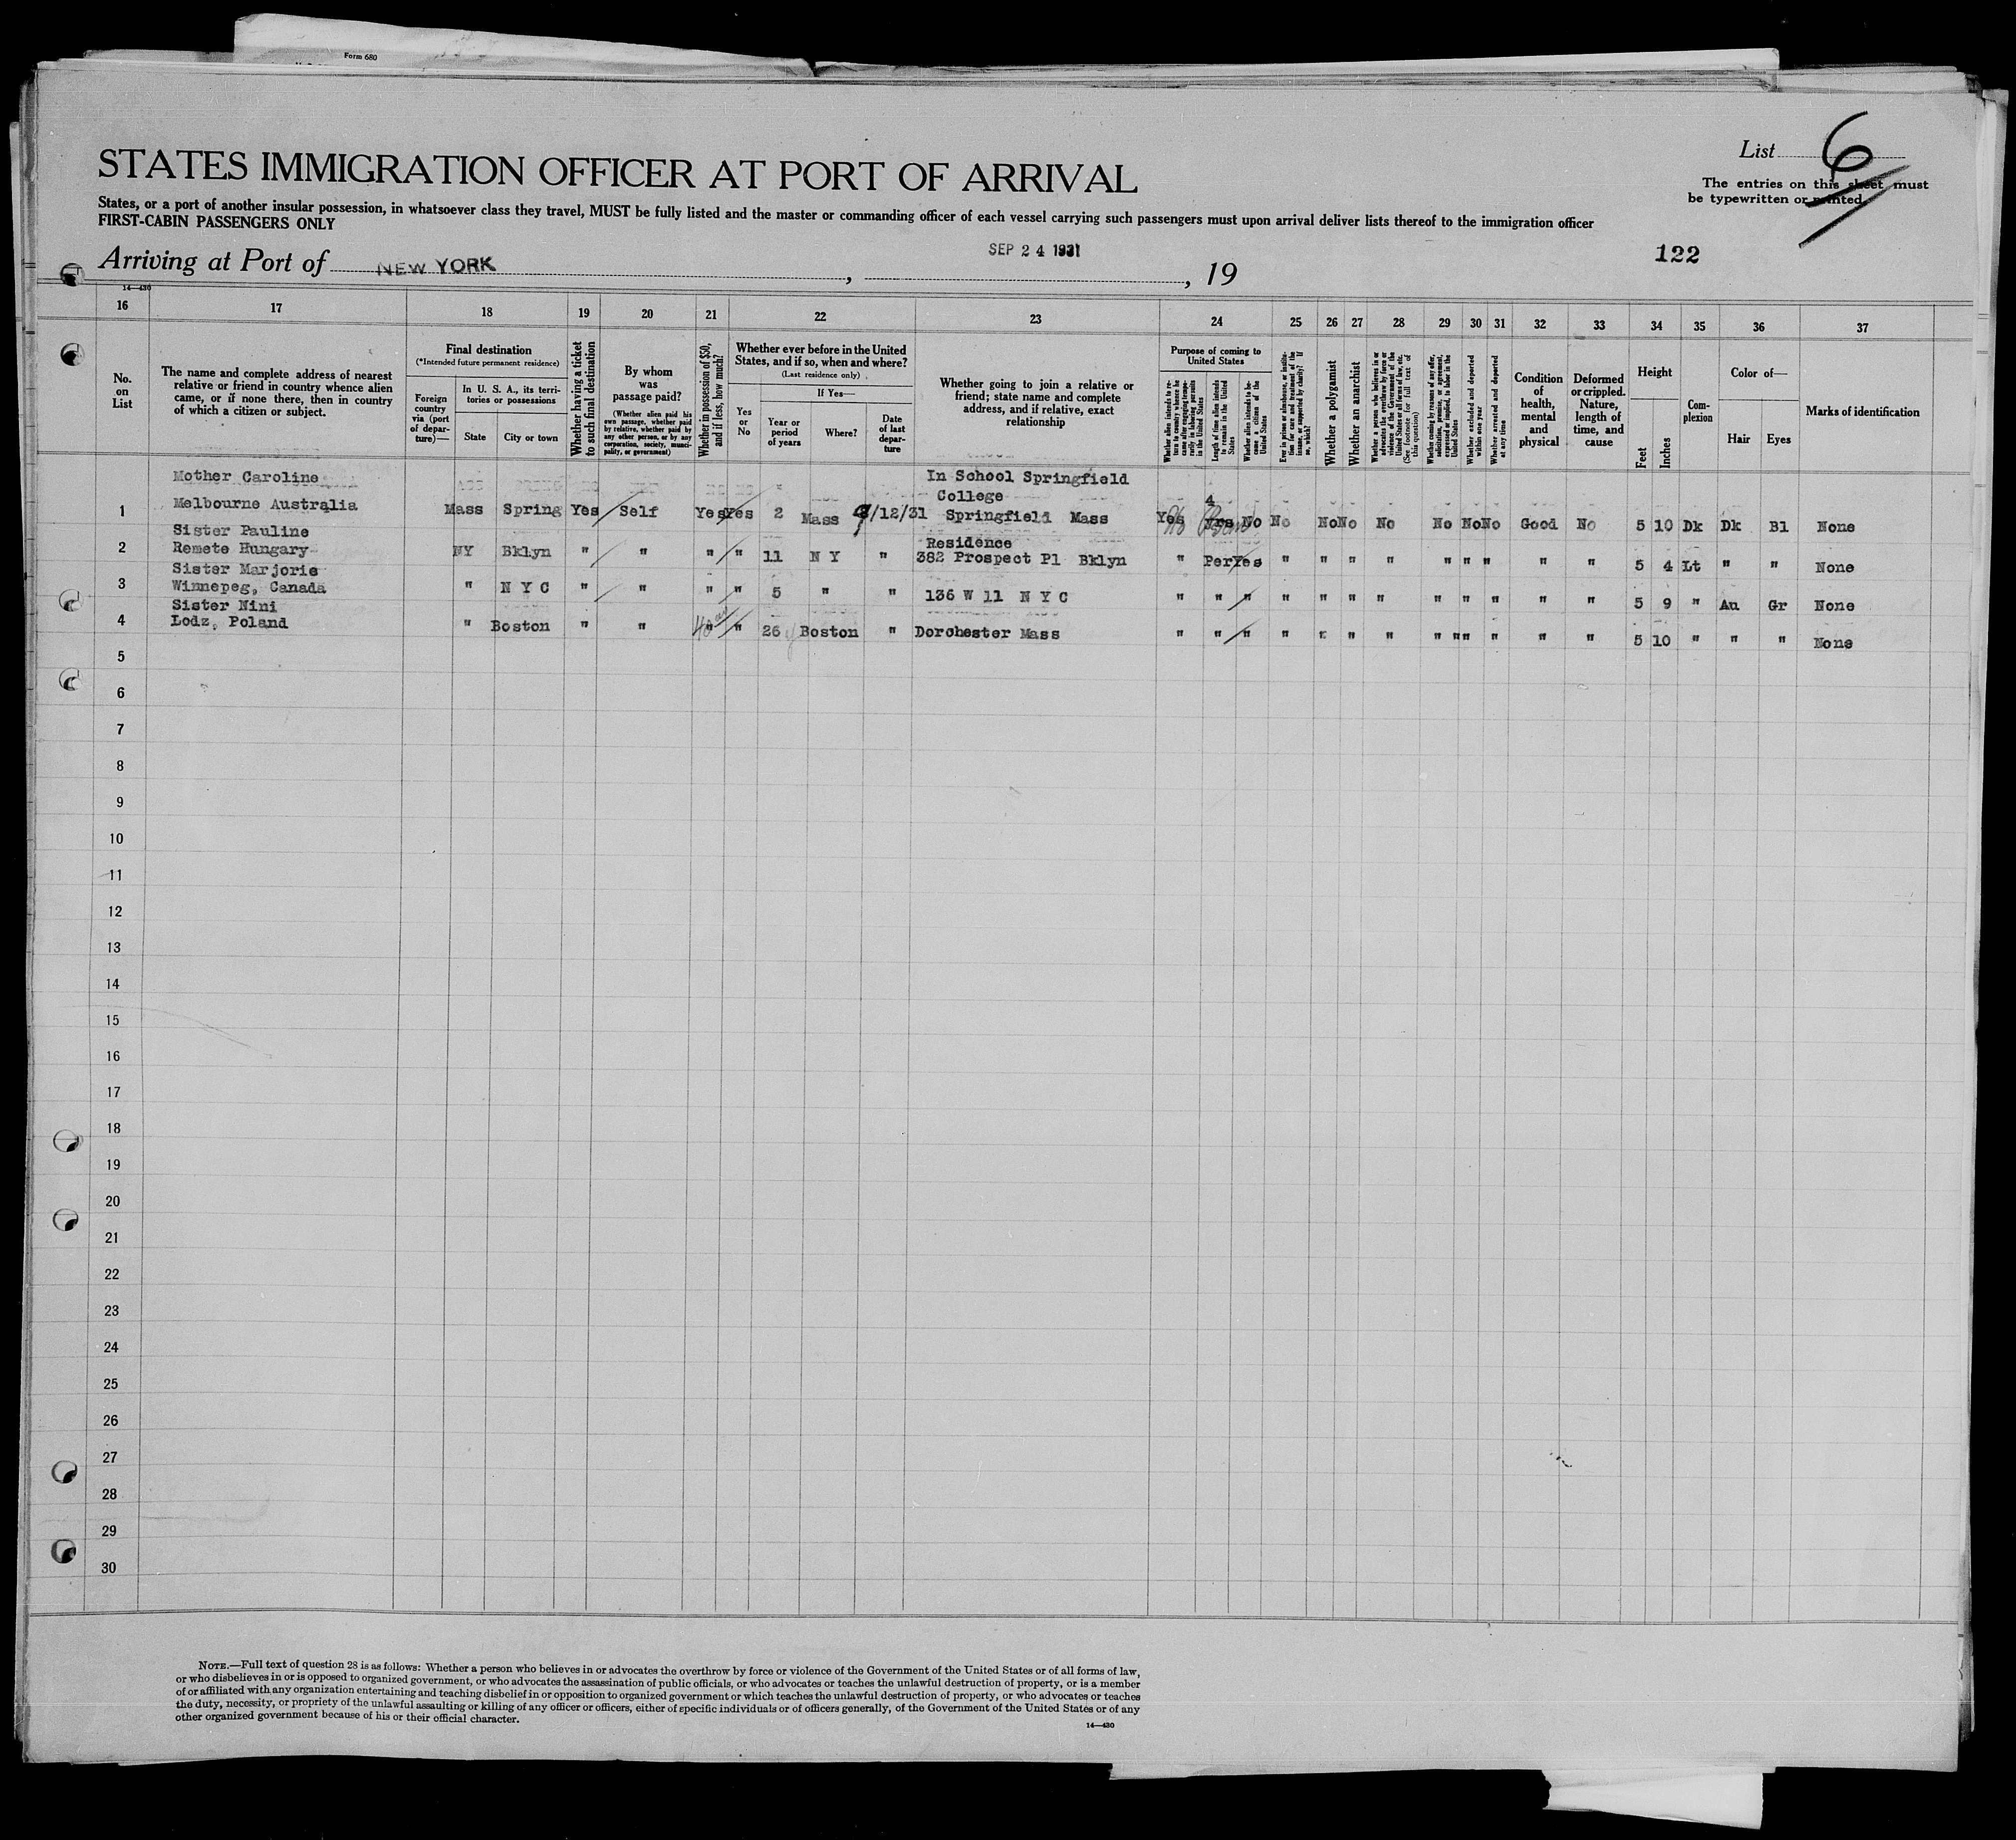 Form 680
List 6
STATES IMMIGRATION OFFICER AT PORT OF ARRIVAL
The entries on this sheet must
be typewritten or printed
States, or a port of another insular possession, in whatsoever class they travel, MUST be fully listed and the master or commanding officer of each vessel carrying such passengers must upon arrival deliver lists thereof to the immigration officer
FIRST-CABIN PASSENGERS ONLY
Arriving at Port of NEW YORK, SEP 24 1931, 19
122
14—430
16 17 18 19 20 21 22 23 24 25 26 27 28 29 30 31 32 33 34 35 36 37
No.
on
List
The name and complete address of nearest
relative or friend in country whence alien
came, or if none there, then in country
of which a citizen or subject.
Final destination
(*Intended future permanent residence)
Foreign
country
via (port
of depar-
ture)—
In U. S. A., its terri-
tories or possessions
State
City or town
Whether having a ticket
to such final destination
By whom
was
passage paid?
(Whether alien paid his
own passage, whether paid
by relative, whether paid by
any other person, or by any
corporation, society, munici-
pality, or government)
Whether in possession of $50,
and if less, how much?
Whether ever before in the United
States, and if so, when and where?
(Last residence only)
Yes
or
No
If Yes—
Year or
period
of years
Where?
Date
of last
depar-
ture
Whether going to join a relative or
friend; state name and complete
address, and if relative, exact
relationship
Purpose of coming to
United States
Whether alien intends to re-
turn to country whence he
came after engaging tempo-
rarily in laboring pursuits
in the United States
Length of time alien intends
to remain in the United
States
Whether alien intends to be-
come a citizen of the
United States
Ever in prison or almshouse, or institu-
tion for care and treatment of the
insane, or supported by charity? If
so, which?
Whether a polygamist
Whether an anarchist
Whether a person who believes in or
advocates the overthrow by force or
violence of the Government of the
United States or all forms of law, etc.
(See footnote for full text of
this question)
Whether coming by reason of any offer,
solicitation, promise, or agreement,
expressed or implied, to labor in the
United States
Whether excluded and deported
within one year
Whether arrested and deported
at any time
Condition
of
health,
mental
and
physical
Deformed
or crippled.
Nature,
length of
time, and
cause
Height
Feet
Inches
Com-
plexion
Color of—
Hair
Eyes
Marks of identification
Mother Caroline In School Springfield
College
1 Melbourne Australia Mass Spring Yes Self Yes Yes 2 Mass 9/12/31 Springfield Mass Yes No 4 Yrs No No No No No No No No Good No 5 10 Dk Dk Bl None
Sister Pauline Residence
2 Remete Hungary NY Bklyn " " " " 11 N Y " 382 Prospect Pl Bklyn " Per Yes " " " " " " " " " 5 4 Lt " " None
Sister Marjorie
3 Winnepeg, Canada " N Y C " " " " 5 " " 136 W 11 N Y C " " " " " " " " " " " " 5 9 " Au Gr None
Sister Nini
4 Lodz, Poland " Boston " " 40 " " 26 Boston " Dorchester Mass " " " " " " " " " " " " " 5 10 " " " None
5
6
7
8
9
10
11
12
13
14
15
16
17
18
19
20
21
22
23
24
25
26
27
28
29
30
NOTE.—Full text of question 28 is as follows: Whether a person who believes in or advocates the overthrow by force or violence of the Government of the United States or of all forms of law,
or who disbelieves in or is opposed to organized government, or who advocates the assassination of public officials, or who advocates or teaches the unlawful destruction of property, or is a member
of or affiliated with any organization entertaining and teaching disbelief in or opposition to organized government or which teaches the unlawful destruction of property, or who advocates or teaches
the duty, necessity, or propriety of the unlawful assaulting or killing of any officer or officers, either of specific individuals or of officers generally, of the Government of the United States or of any
other organized government because of his or their official character.
14—430